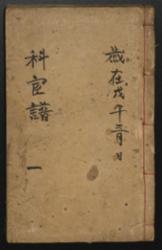 歲在戊午三月日
科宦譜
一